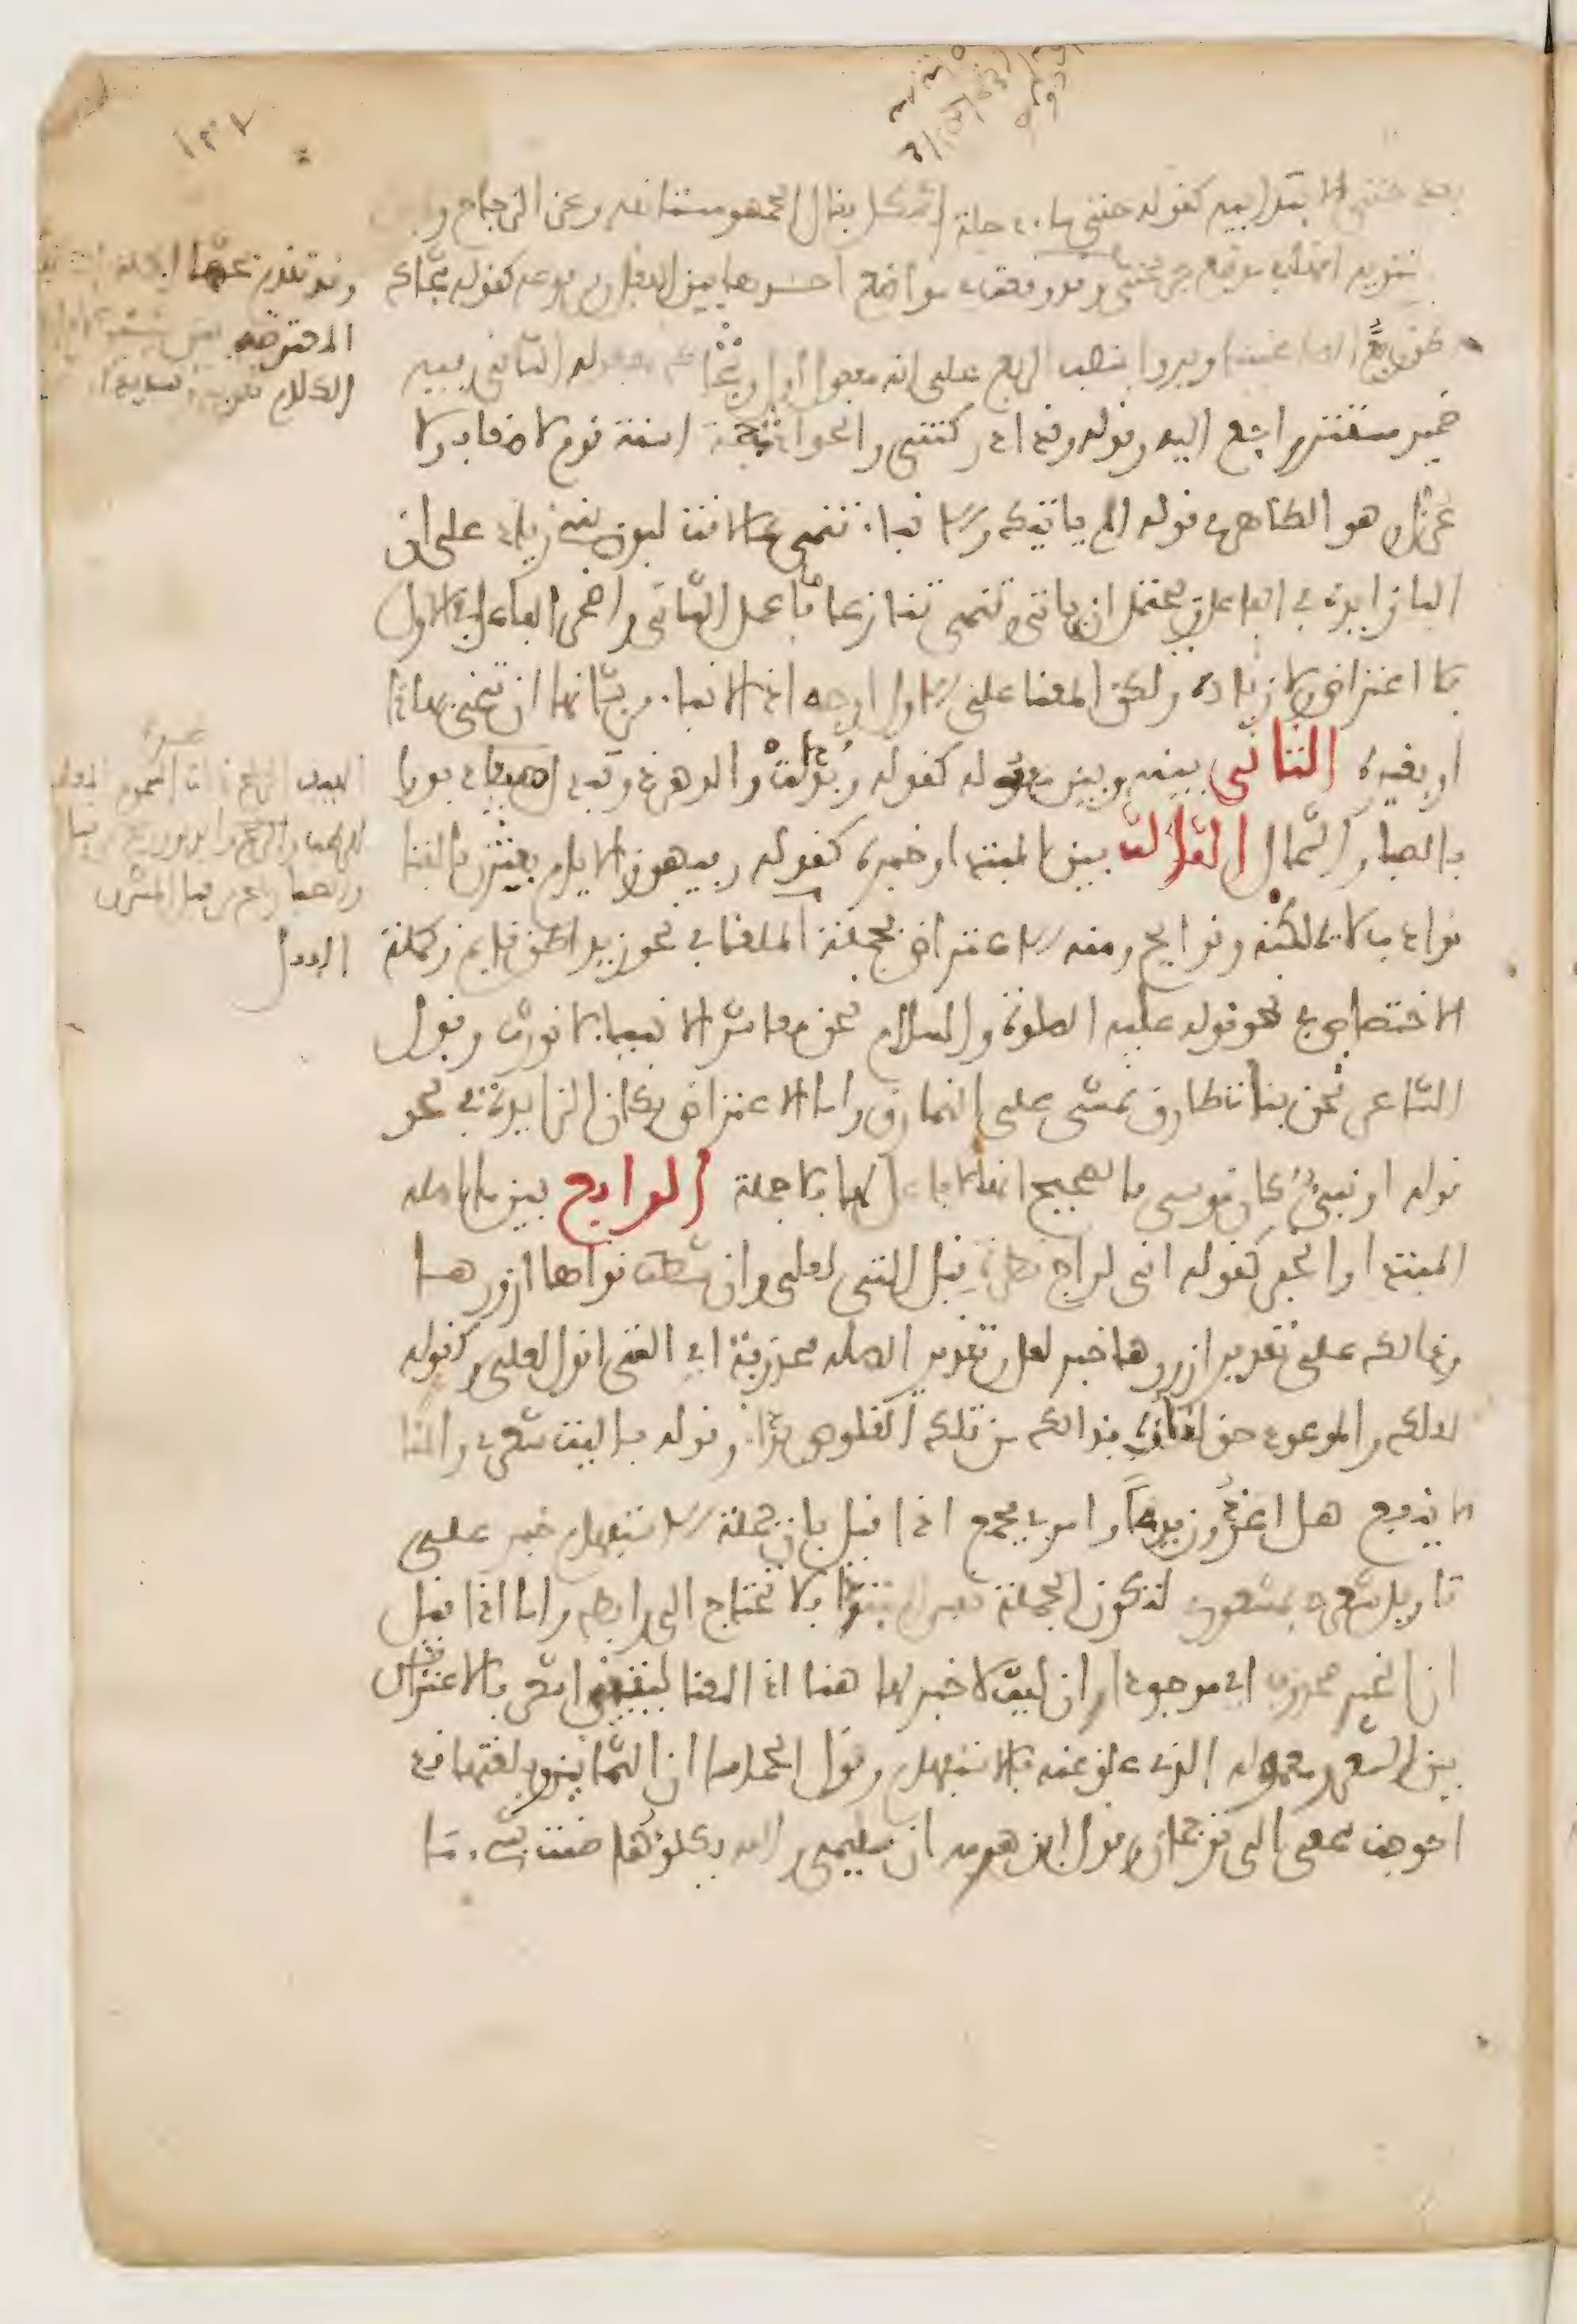 بعد حتى الابتدائية كقوله حتى ماء دجلة اشكل فقال الجمهور مستأنفة وعن الزجاج و
درستويه انها في موضع جر بحتى وقد وقعت في مواضع احدها بين الفعل ومرفوعه كقوله شجاك
اظن ربع الظاعنينا ويروى بنصب الربع على انه مفعول اول وشجاك مفعوله الثاني وفيه
ضمير مستتر راجع اليه وقوله وقد ادركتني والحوادث جمة اسنة قوم لا ضعاف ولا
عزل وهو الظاهر في قوله الم ياتيك والانباء تنمي بما لاقت لبون بني زياد على ان
الباء زايدة في الفاعل ويحتمل ان ياتي وتنمي تنازعا فاعمل الثاني واضمر الفاعل في الاول
فلا اعتراض ولا زيادة ولكن المعنا على الاول اوجه اذ الانباء من شانها ان تنمي بهاذا
او بغيره الثاني بينه وبين مفعوله كقوله وبدلت والدهر ذو تبدل هيفا دبورا
بالصبا والشمال الثالث بين المبتدا وخبره كقوله وفيهن والايام يعثرن بالفتا
نوادب لا يمللنه ونوايح ومنه الاعتراض بجملة الملغا في نحو زيد اظن قايم وبجملة
الاختصاص في نحو قوله عليه الصلوة والسلام نحن معاشر الانبياء لا نورث وقول
الشاعر نحن بنات طارق نمشي على النمارق واما الاعتراض بكان الزايدة في نحو
قوله او نبي كان موسى فالصحيح انها لا فاعل لها فلا جملة الرابع بين ما اصله
المبتدا والخبر كقوله اني لراج نظرة قبل التي لعلي وان شطت نواها ازورها
وذالك على تقدير ازورها خبر لعل وتقدير الصلة محذوفة اي التي اقول لعلي وكقوله
لعلك والموعود حق لقاؤه بدا لك من تلك القلوص بداء وقوله يا ليت شعري والمنا
لا ينفع هل اغدون يوما وامري مجمع اذا قيل بان جملة الاستفهام خبر على
تاويل شعري بمشعوري لتكون الجملة نفس المبتدا فلا تحتاج الى رابط واما اذا قيل
ان الخبر محذوف اي موجود او ان ليت لا خبر لها هنا اذ المعنا ليتني اشعر فالاعتراض
بين الشعر ومعموله الذي علق عنه بالاستفهام وقول الحماسي ان الثمانين وبلغتها قد
احوجت سمعي الى ترجمان وقول ابن هرمة ان سليمى والله يكلؤها ضنت بشيء ما
المعترضة
الكلام تقوية وتسديدا